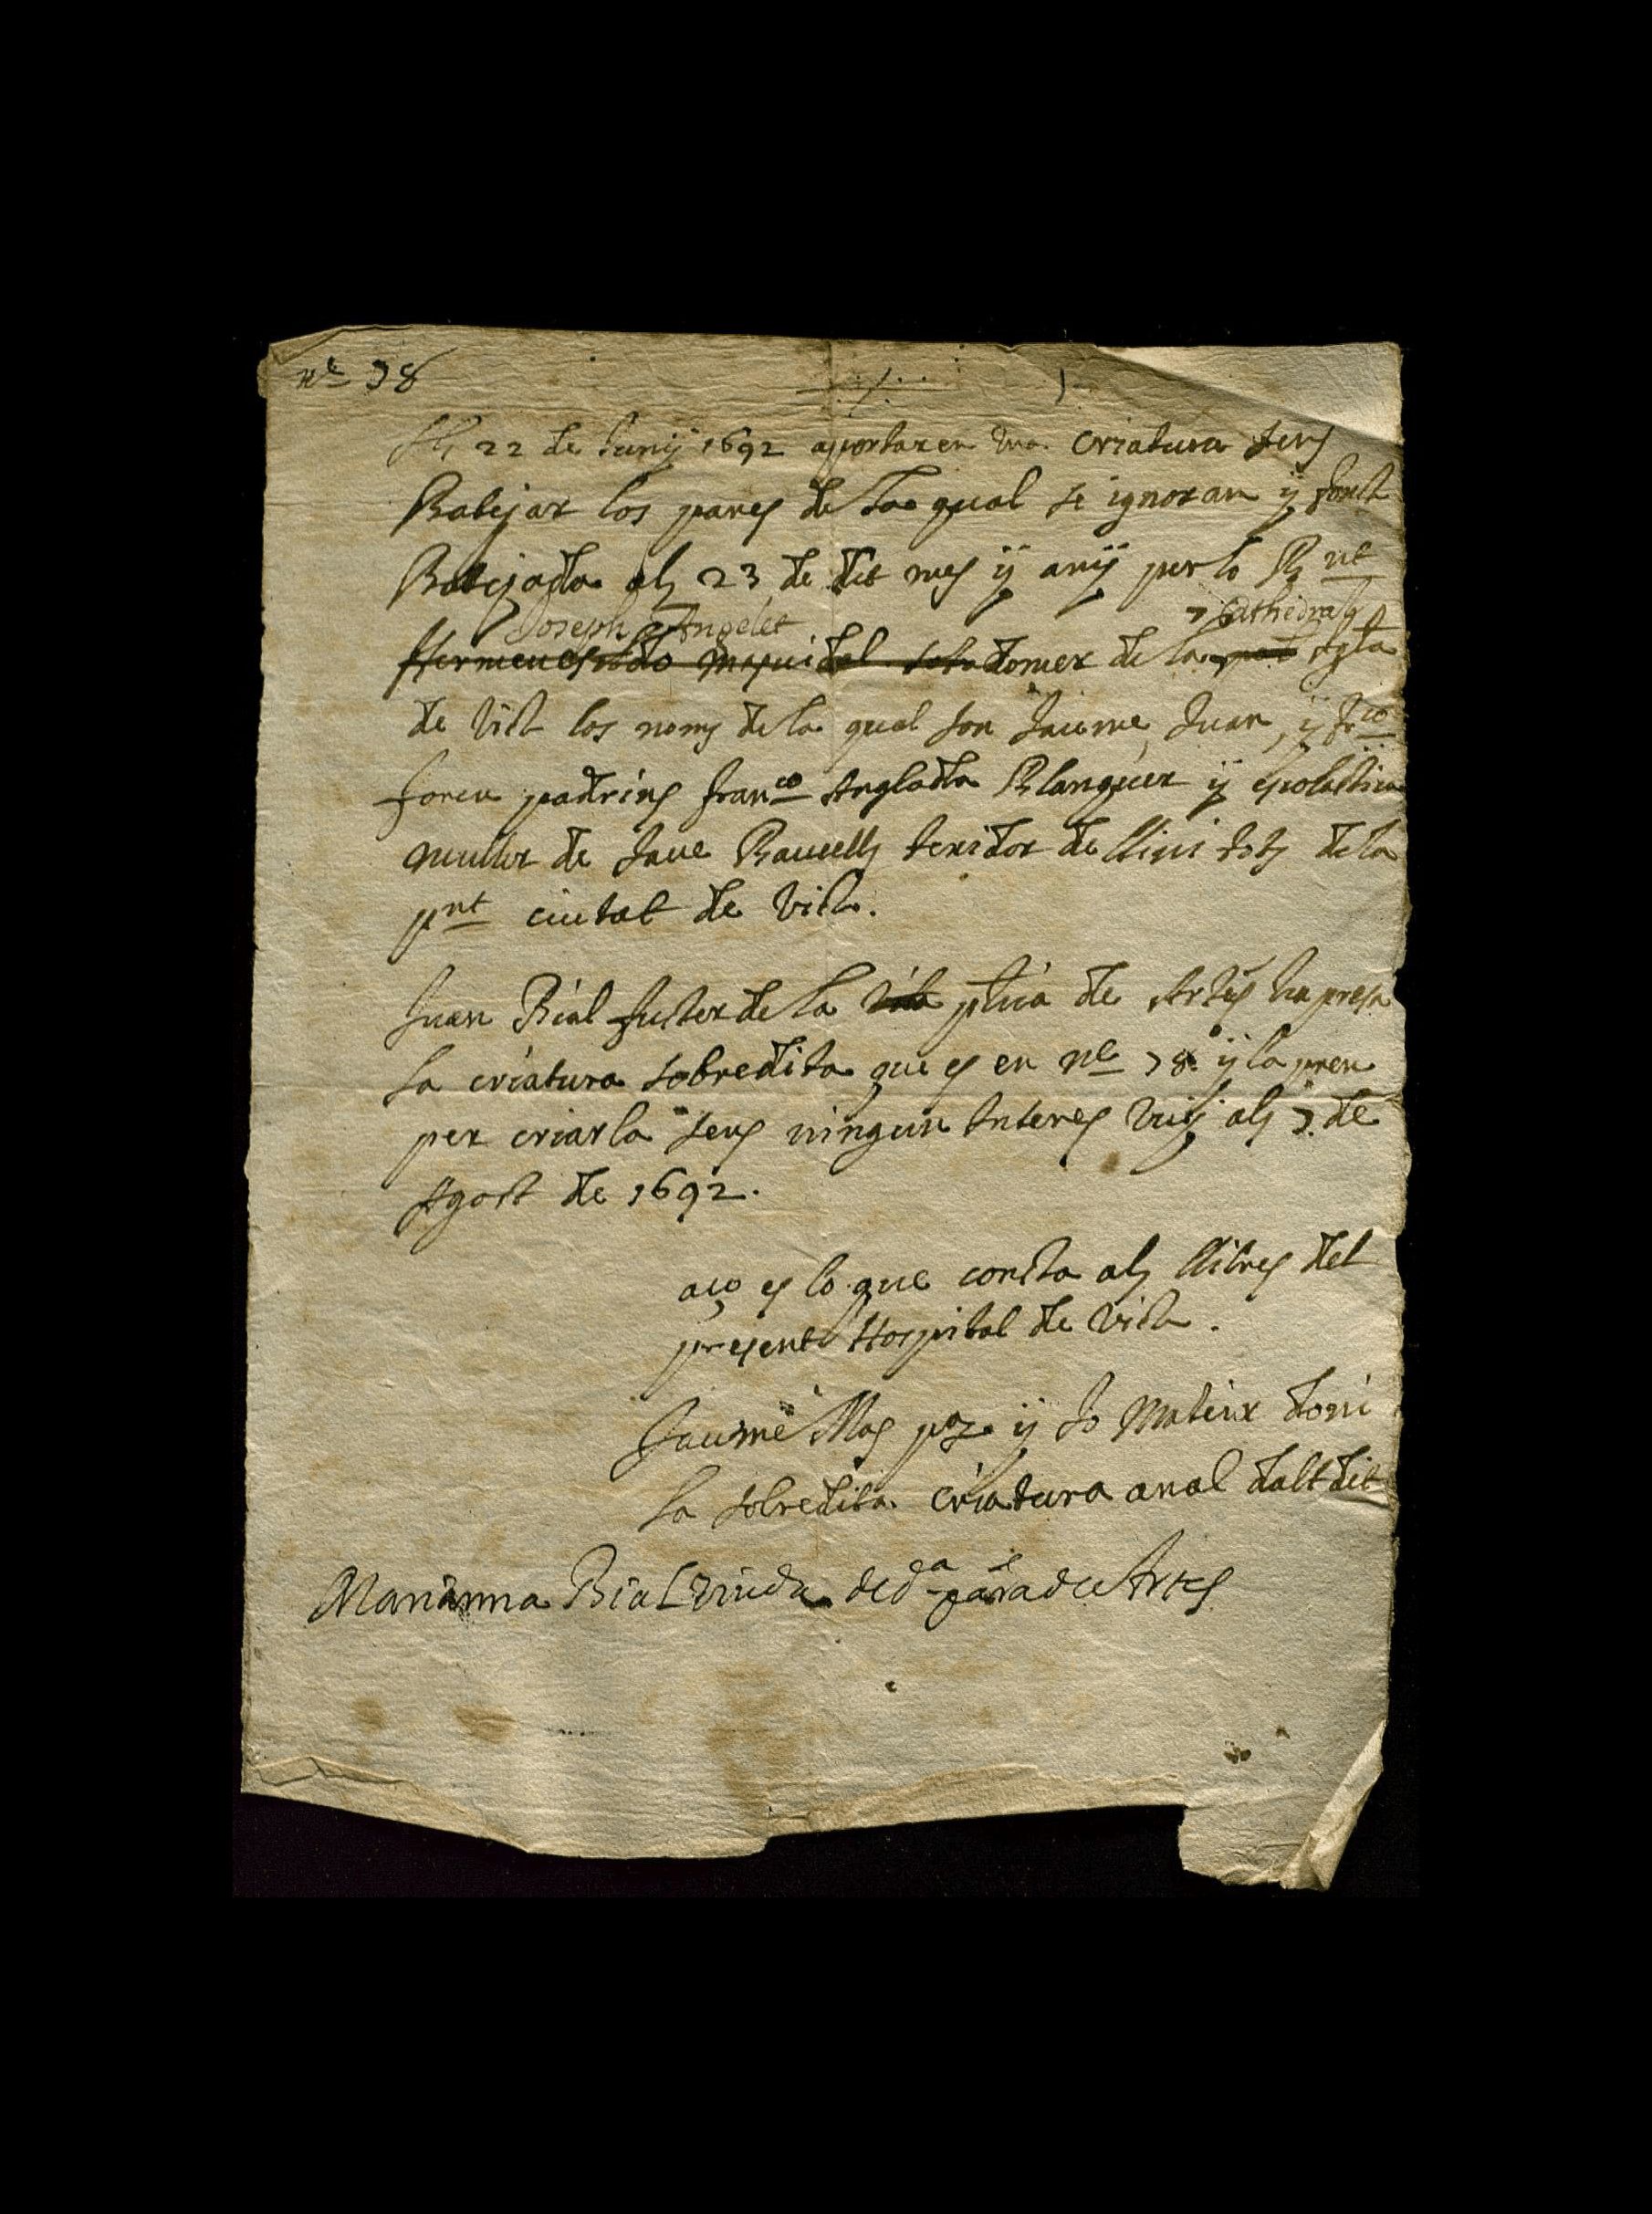 nº 78
Als 22 de Juny 1692 aportaren una criatura sens
Batejar los pares de la qual se ignoran y fonch
Batejada als 23 de dit mes y any per lo Rnt
Joseph Angelet Cathedral
domer de la Igla
de Vich los noms de la qual son Jaume, Juan, y Frco
foren padrins Franco Anglada Blanquer y Escolastica
muller de Jaue Baucells texidor de llini tots de la
pnt ciutat de Vich.
Juan Bial fuster de la vila de Artes ha presa
la criatura sobredita que es en nº 78 y la pren
per criarla sens ningun interes vuy als 7 de
Agost de 1692.
aço es lo que consta als llibres del
present Hospital de Vich.
Jaume Mas y Jo Mateix doni
la sobredita criatura an al dalt dit
Marianna Bial viuda de da de Artes